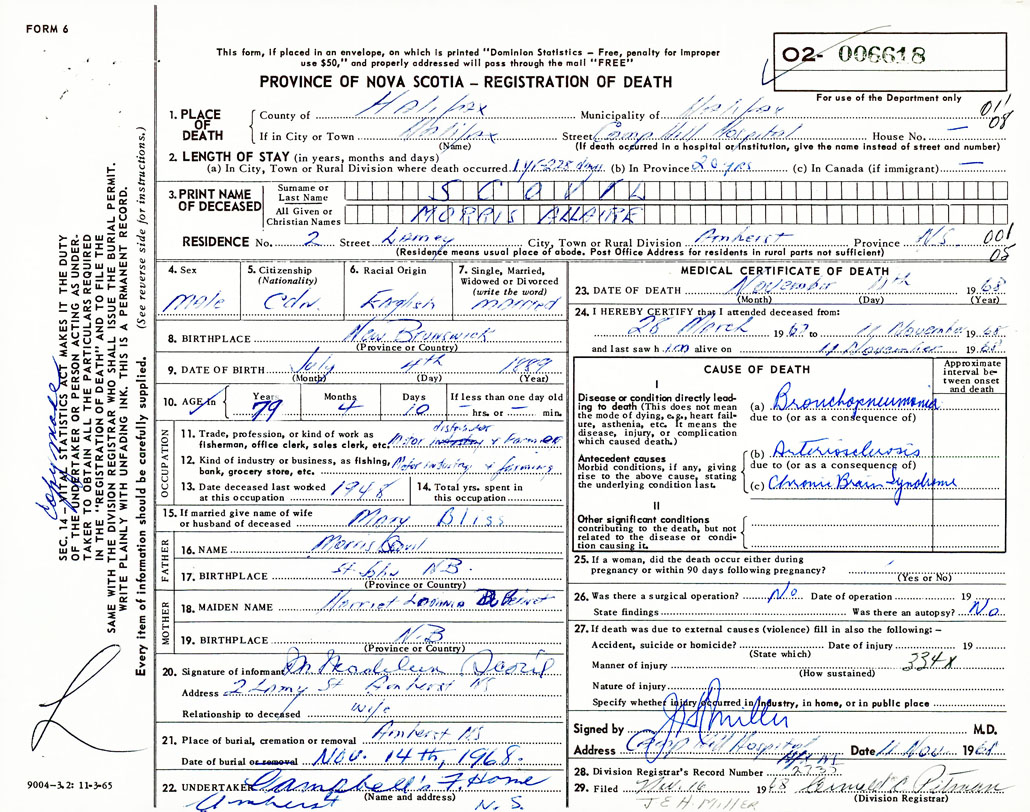 FORM 6
This form, if placed in an envelope, on which is printed "Dominion Statistics – Free, penalty for improper
use $50," and properly addressed will pass through the mail "FREE"
PROVINCE OF NOVA SCOTIA – REGISTRATION OF DEATH
02- 006618
For use of the Department only
1. PLACE OF DEATH
County of Halifax Municipality of Halifax
If in City or Town Halifax Street Camp Hill Hospital House No. —
(Name) (If death occurred in a hospital or institution, give the name instead of street and number)
2. LENGTH OF STAY (in years, months and days)
(a) In City, Town or Rural Division where death occurred 1 yr-228 days (b) In Province 20 yrs (c) In Canada (if immigrant) —
3. PRINT NAME OF DECEASED
Surname or Last Name SCOVIL
All Given or Christian Names MORRIS ALLAIRE
RESIDENCE No. 2 Street Lamey City, Town or Rural Division Amherst Province N.S.
(Residence means usual place of abode. Post Office Address for residents in rural parts not sufficient)
4. Sex
male
5. Citizenship
(Nationality)
Cdn.
6. Racial Origin
English
7. Single, Married,
Widowed or Divorced
(write the word)
married
8. BIRTHPLACE New Brunswick
(Province or Country)
9. DATE OF BIRTH July 4th 1889
(Month) (Day) (Year)
10. AGE in Years Months Days If less than one day old
79 4 10 — hrs. or — min.
OCCUPATION
11. Trade, profession, or kind of work as
fisherman, office clerk, sales clerk, etc. Motor distributor
12. Kind of industry or business, as fishing,
bank, grocery store, etc. Motor industry & farming
13. Date deceased last worked
at this occupation 1948
14. Total yrs. spent in
this occupation
15. If married give name of wife
or husband of deceased Mary Bliss
FATHER
16. NAME Morris Scovil
17. BIRTHPLACE St John N.B.
(Province or Country)
MOTHER
18. MAIDEN NAME Harriet
19. BIRTHPLACE N.B
(Province or Country)
20. Signature of informant M. Madeleen Scovil
Address 2 Lamy St Amherst NS
Relationship to deceased wife
21. Place of burial, cremation or removal Amherst NS
Date of burial or removal Nov. 14th, 1968.
22. UNDERTAKER Campbell's F. Home
(Name and address)
Amherst N.S.
MEDICAL CERTIFICATE OF DEATH
23. DATE OF DEATH November 11th 1968
(Month) (Day) (Year)
24. I HEREBY CERTIFY that I attended deceased from:
28 March 1967 to 11 November 1968
and last saw him alive on 11 November 1968
CAUSE OF DEATH
Approximate
interval between
onset
and death
I
Disease or condition directly leading
to death (This does not mean
the mode of dying, e.g., heart failure,
asthenia, etc. It means the
disease, injury, or complication
which caused death.)
(a) Bronchopneumonia
due to (or as a consequence of)
Antecedent causes
Morbid conditions, if any, giving
rise to the above cause, stating
the underlying condition last.
(b) Arteriosclerosis
due to (or as a consequence of)
(c) Chronic Brain Syndrome
II
Other significant conditions
contributing to the death, but not
related to the disease or condition
causing it.
25. If a woman, did the death occur either during
pregnancy or within 90 days following pregnancy?
(Yes or No)
26. Was there a surgical operation? No Date of operation 19
State findings Was there an autopsy? No
27. If death was due to external causes (violence) fill in also the following: –
Accident, suicide or homicide? Date of injury 19
(State which)
Manner of injury 334x
(How sustained)
Nature of injury
Specify whether injury occurred in Industry, in home, or in public place
Signed by J H Miller M.D.
Address Camp Hill Hospital Date 11 Nov 1968
28. Division Registrar's Record Number 2733
29. Filed Nov. 16 1968
(Division Registrar)
J E H. MILLER
SEC. 14 – VITAL STATISTICS ACT MAKES IT THE DUTY
OF THE UNDERTAKER OR PERSON ACTING AS UNDERTAKER
TO OBTAIN ALL THE PARTICULARS REQUIRED
IN THE "REGISTRATION OF DEATH" AND TO FILE THE
SAME WITH THE DIVISION REGISTRAR WHO SHALL ISSUE THE BURIAL PERMIT.
WRITE PLAINLY WITH UNFADING INK. THIS IS A PERMANENT RECORD.
Every item of information should be carefully supplied. (See reverse side for instructions.)
9004-3.2: 11-3-65